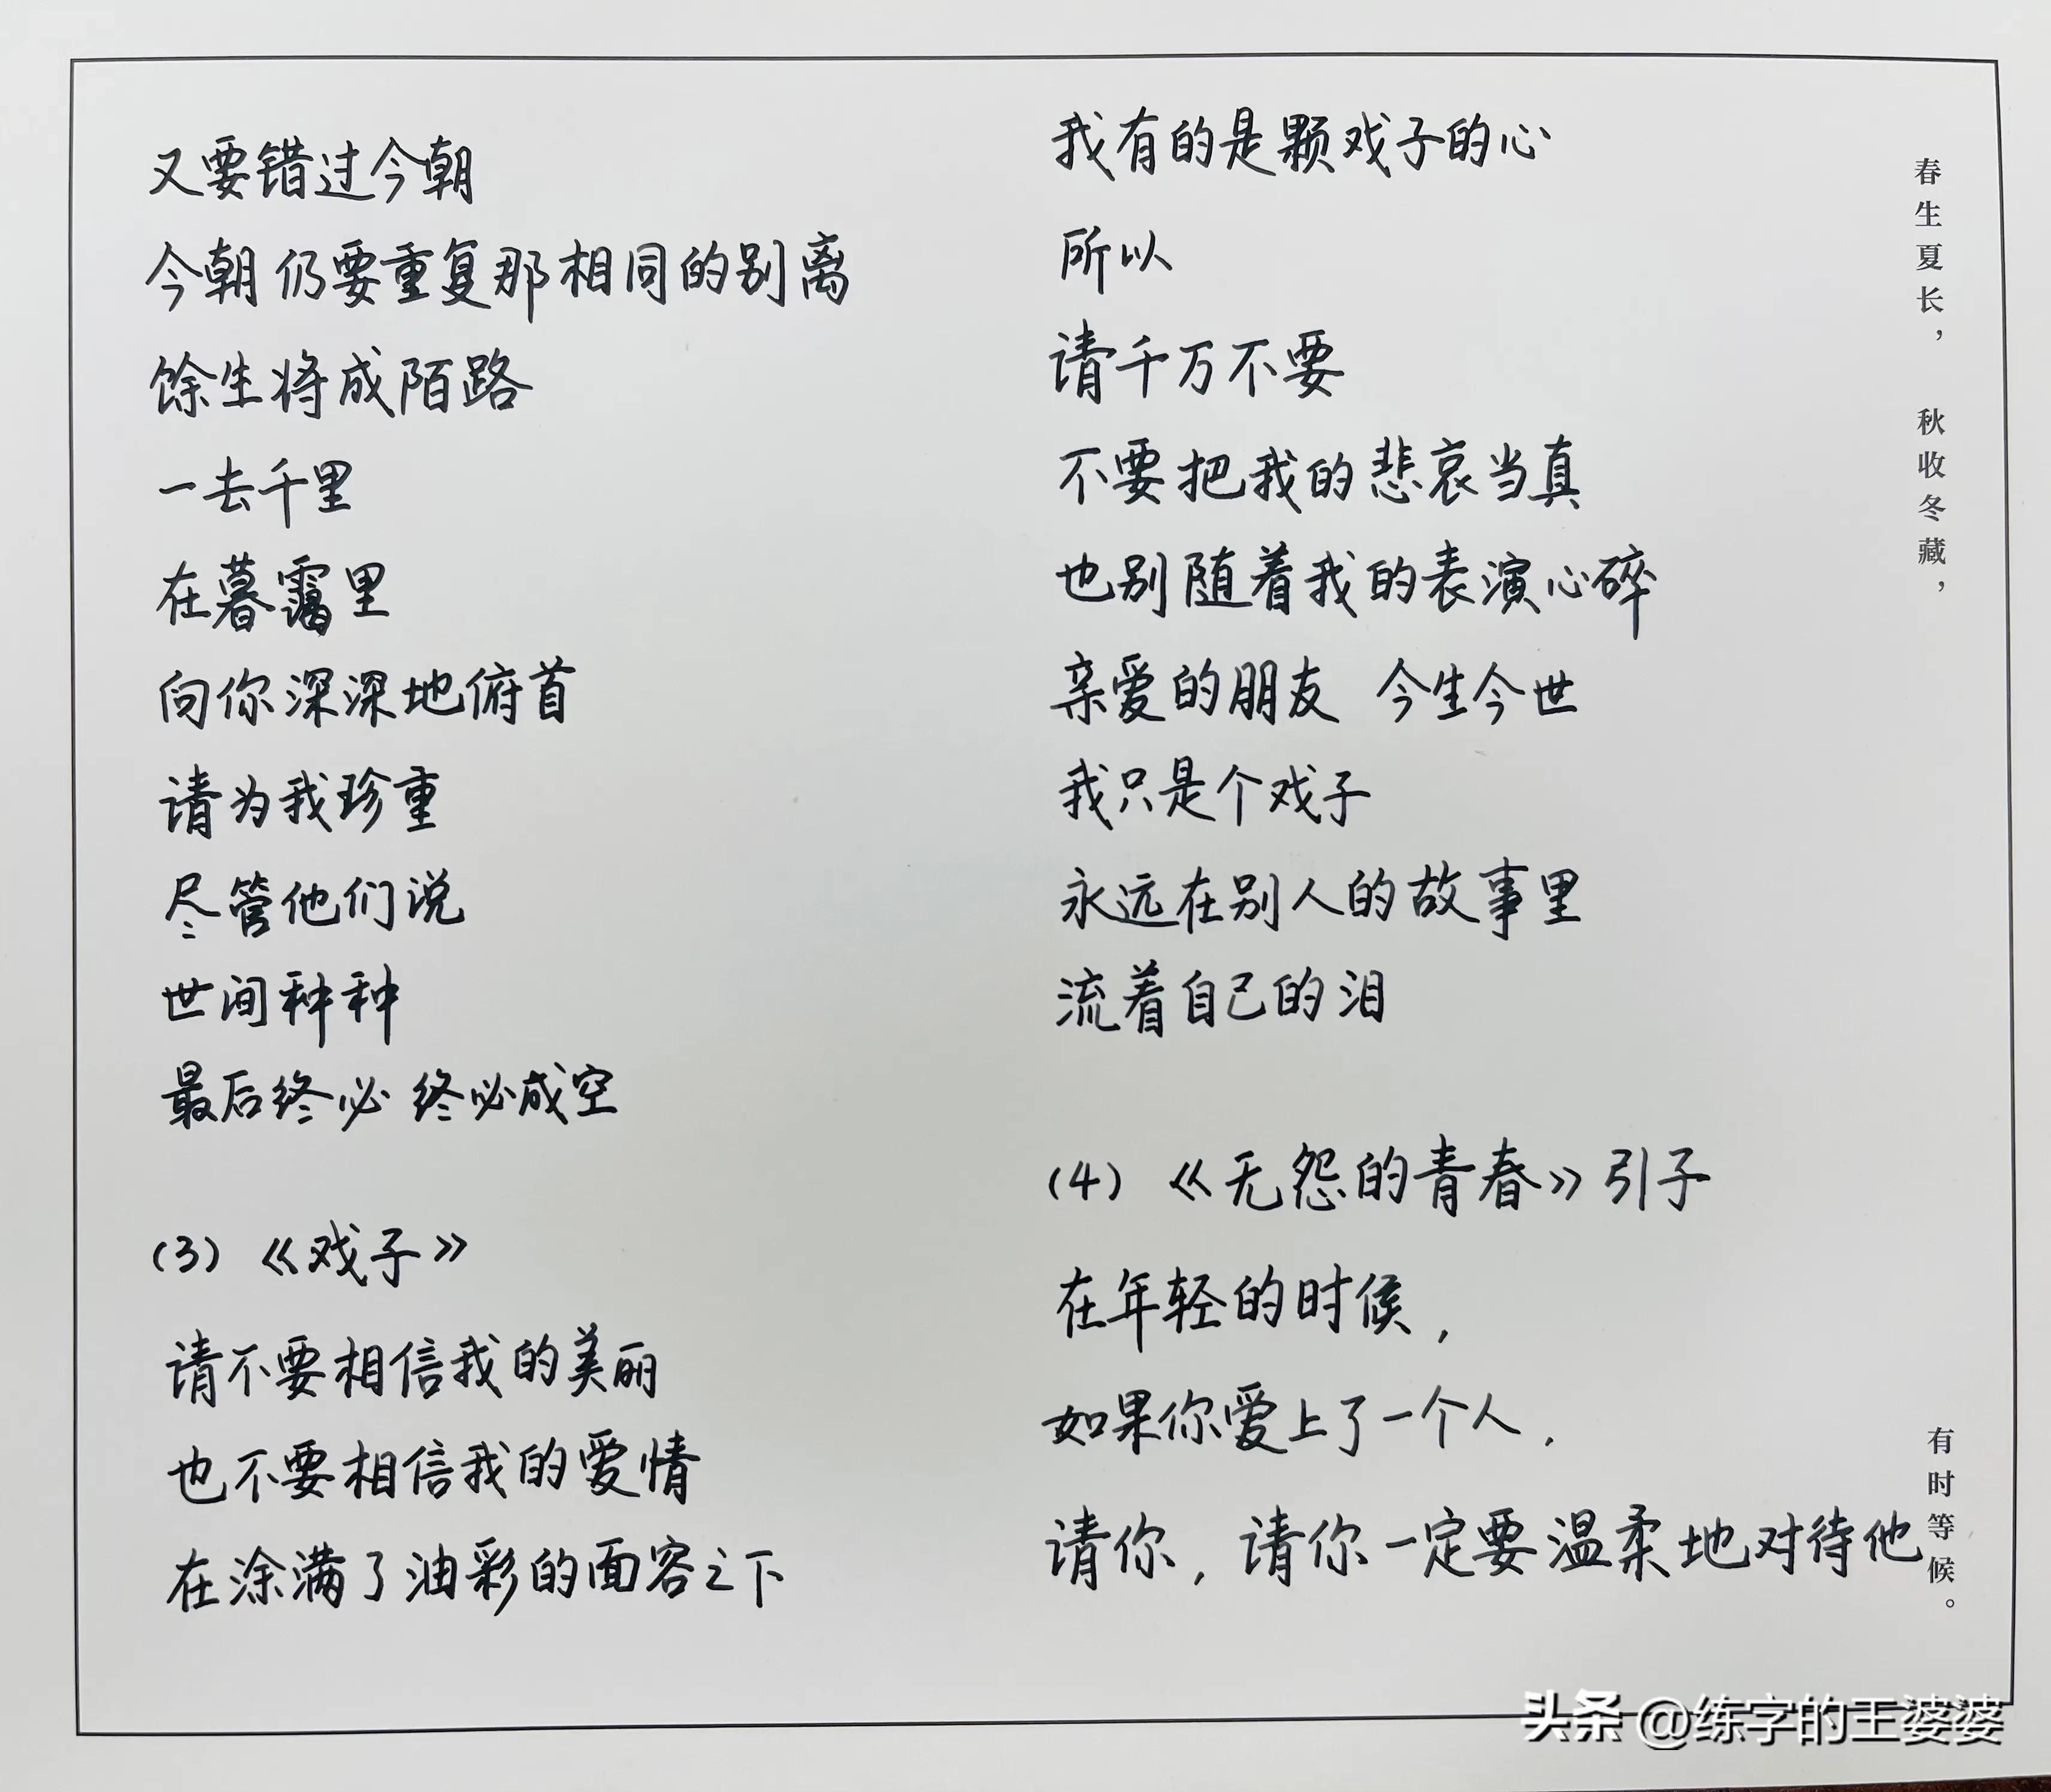 又要错过今朝
今朝仍要重复那相同的别离
馀生将成陌路
一去千里
在暮霭里
向你深深地俯首
请为我珍重
尽管他们说
世间种种
最后终必 终必成空
(3)《戏子》
请不要相信我的美丽
也不要相信我的爱情
在涂满了油彩的面容之下
我有的是颗戏子的心
所以
请千万不要
不要把我的悲哀当真
也别随着我的表演心碎
亲爱的朋友 今生今世
我只是个戏子
永远在别人的故事里
流着自己的泪
(4)《无怨的青春》引子
在年轻的时候，
如果你爱上了一个人，
请你，请你一定要温柔地对待他
春生夏长，
秋收冬藏，
有时等候。
头条 @练字的王婆婆